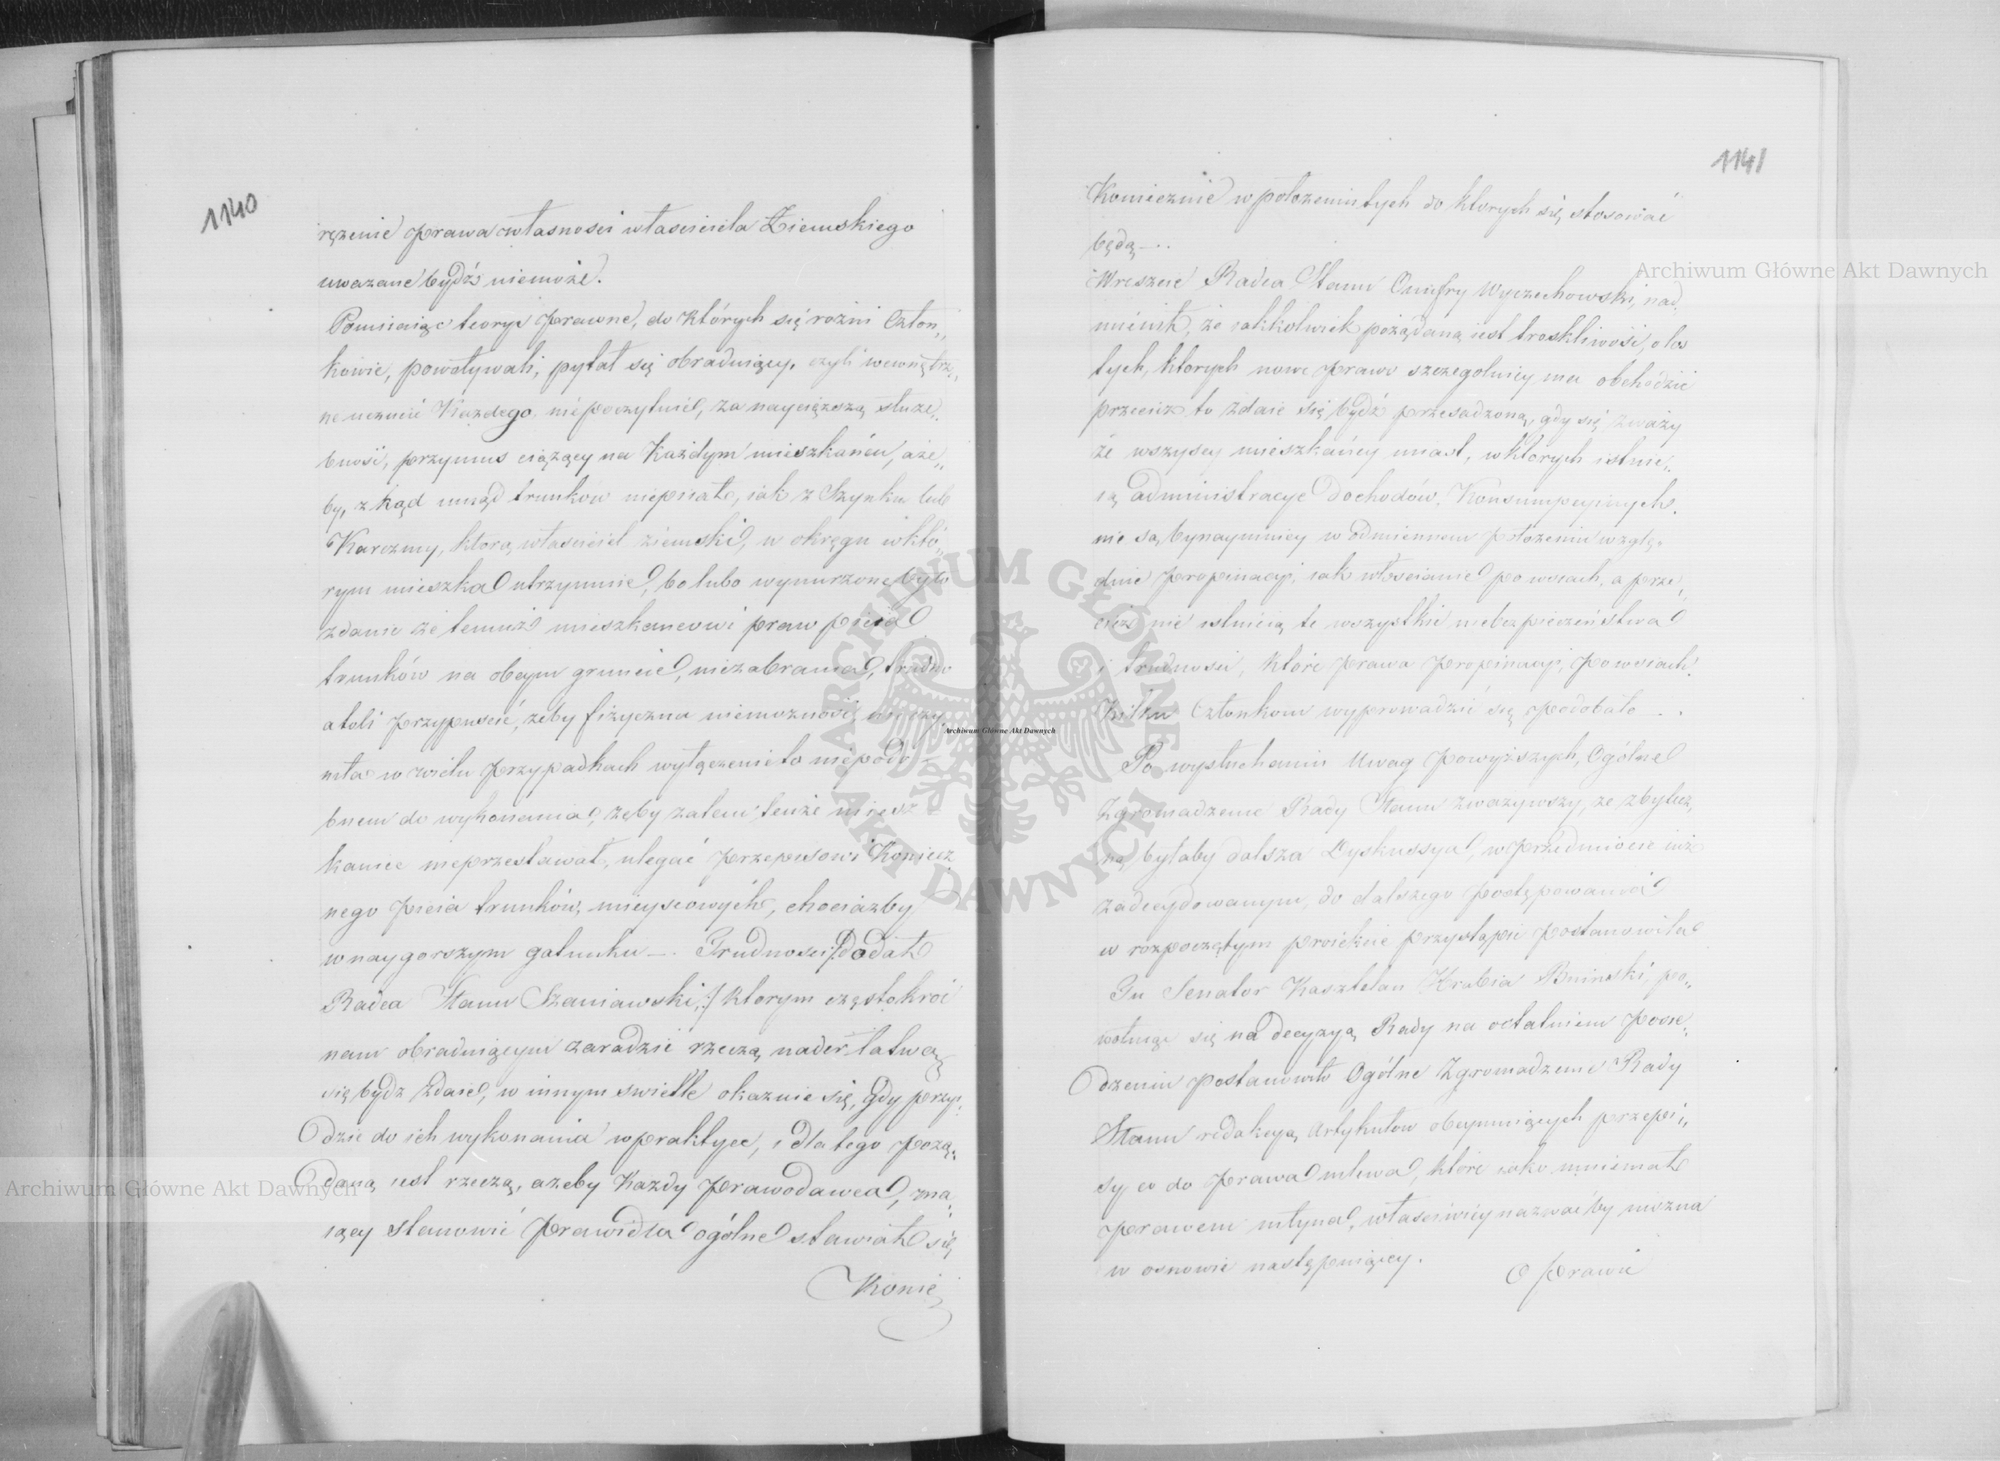 1140
ręzenie prawa własnosci własciciela Ziemskiego
uwazane bydź niemoże.
Pomieiaiąc teorye prawne, do których się rożni Człon„
kowie, powoływali, pytał się obraduiący, czyli wewnętrz„
ne uczucie Każdego niepoczytuie, za naycięższą służe„
bność, przymus ciążący na Każdym mieszkańcu, aże„
by, z kąd inąd trunków niepiiał, iak z Szynku lub
Karczmy, którą własciciel ziemski, w okręgu w któ„
rym mieszka utrzymuie, bo lubo wynurzone było
zdanie że temuż mieszkancowi praw picia
trunków na obcym gruncie, niezabrania, trudno
atoli przypuscić, żeby fizyczna niemożność nie czy„
niła w wielu przypadkach wyłączenie to niepodo„
bnem do wykonania, żeby zatem tenże miesz„
kaniec nieprzestawał, ulegać przepisowi Koniecz„
nego picia trunków, mieyscowych, chociażby
w naygorszym gatunku —. Trudnosci /: dodał
Radca Stanu Szaniawski :/ którym częstokroć
nam obraduiącym zaradzić rzeczą nader łatwą
się bydz zdaie, w innym swietle okazuie się, gdy przyi„
dzie do ich wykonania w praktyce, i dla tego pożą„
daną iest rzeczą, ażeby Każdy Prawodawca, ma„
iący stanowić Prawidła ogólne stawiał się
Konie
1141
Koniecznie w położeniu tych do których się stosować
będą —..
Wreszcie Radca Stanu Onufry Wyczechowski, nad„
mienił, że iakkolwiek pożądaną iest troskliwość, o los
tych, ktorych nowe prawo szczegolniey ma obchodzić
przecież ta zdaie się bydź przesadzoną, gdy się zważy
że wszyscy mieszkańcy miast, w których istnie„
ią administracye Dochodów Konsumpcyinych.
nie są bynaymniey w odmiennem położeniu wzglę„
dnie propinacyi, iak włościanie po wsiach, a prze„
cież nie istnieią te wszystkie niebezpieczeństwa
i trudnosci, które prawa propinacyi, po wsiach
Kilku Członkom wyprowadzić się spodobało ..
Po wysłuchaniu Uwag powyższych, Ogólne
Zgromadzenie Rady Stanu zwazywszy, ze zbytecz„
ną byłaby dalsza Dyskussya, w przedmiocie iuż
zadecydowanym, do dalszego postępowania
w rozpoczętym proiekcie przystąpić postanowiło
Tu Senator Kasztelan Hrabia Bninski, po„
wołuiąc się na decyzyą Rady na ostatniem posie„
dzeniu postanowiło Ogólne Zgromadzenie Rady
Stanu redakcyą Artykułów obeymuiących przepi„
sy co do Prawa mlewa, które iako mniemał
prawem młyna, własciwiey nazwać by można
w osnowie następuiącey.
O prawie
Archiwum Główne Akt Dawnych
Archiwum Główne Akt Dawnych
Archiwum Główne Akt Dawnych
ARCHIWUM GŁÓWNE AKT DAWNYCH